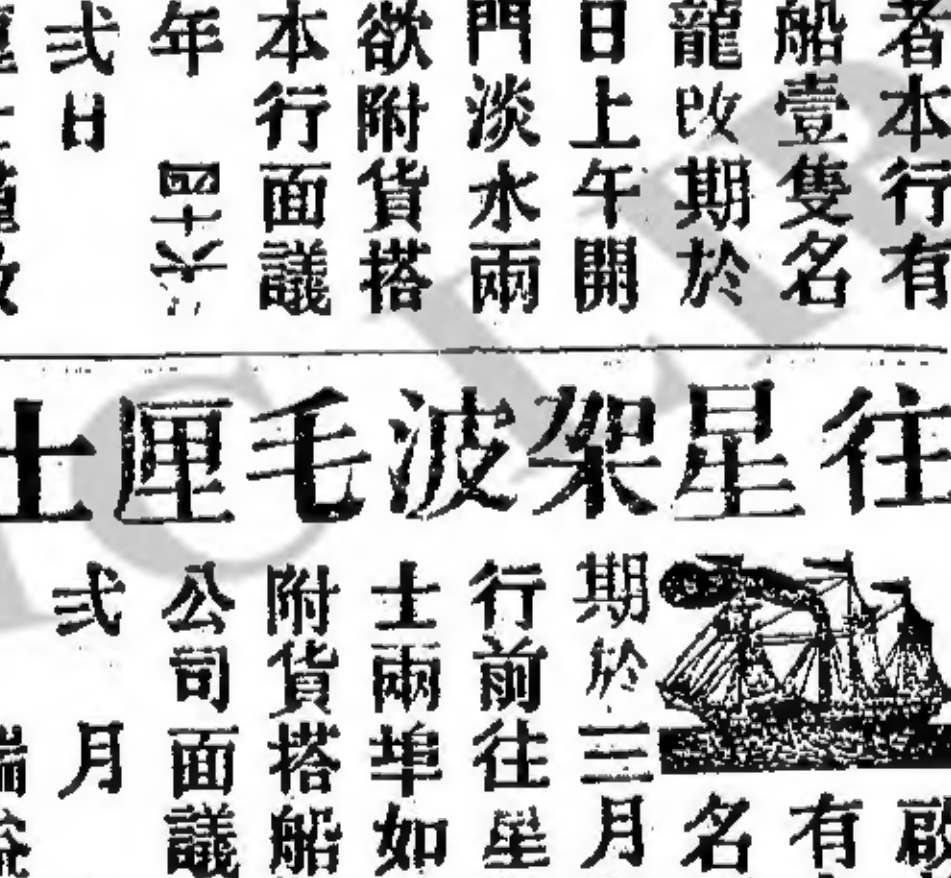 者本行有
船壹隻名
龍改期於
日上午開
門淡水兩
欲附貨搭
本行面議
年 四十六
弍日
往星架波毛厘士
啟
有
名
期於三月
行前往星
士兩埠如
附貨搭船
公司面議
弍月